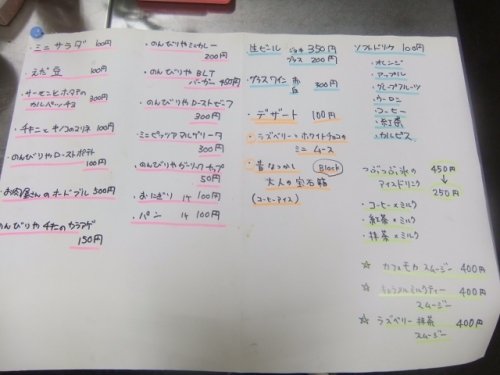 ・ミニサラダ 100円
・えだ豆 100円
・サーモンとホタテの
カルパッチョ 300円
・チキンとキノコのマリネ 100円
・のんびりやローストポテト
100円
・お肉屋さんのオードブル 300円
のんびりや チキンのカラアゲ
150円
・のんびりやミニカレー
200円
・のんびりや BLT
バーガー 450円
・のんびりやローストビーフ
300円
・ミニピッツァマルゲリータ
300円
・のんびりやガーリックチップ
50円
・おにぎり 1ケ 100円
・パン 1ケ 100円
生ビール ジョッキ 350円
グラス 200円
・グラスワイン 赤
白 300円
・デザート 100円
・ラズベリーとホワイトチョコの
ミニムース
・昔なつかし Black
大人の宝石箱
(コーヒーアイス)
ソフトドリンク 100円
・オレンジ
・アップル
・グレープフルーツ
・ウーロン
・コーヒー
・紅茶
・カルピス
つぶつぶ氷の 450円
アイスドリンク ↓
250円
・コーヒー×ミルク
・紅茶×ミルク
・抹茶×ミルク
☆ カフェモカ スムージー 400円
☆ キャラメルミルクティー 400円
スムージー
☆ ラズベリー抹茶 400円
スムージー